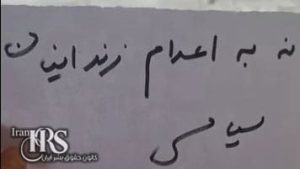 نه به اعدام زندانیان
سیاسی
Iran
HRS
کانون حقوق بشر ایران